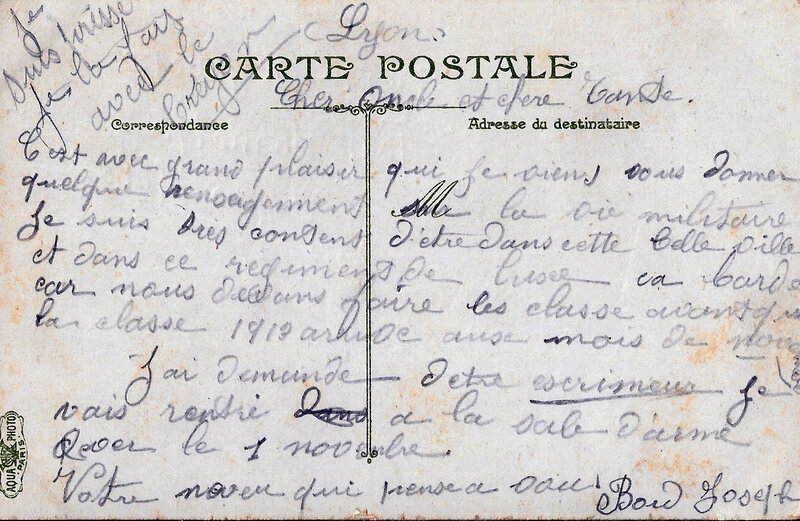 Je
suis brisse
je la fais
avec le
Lyon.
CARTE POSTALE
Cher Oncle et chere Tante.
Correspondance
Adresse du destinataire
C'est avec grand plaisir qui je viens vous donner
quelque sur la vie militaire
Je suis tres content d'etre dans cette belle ville
et dans ce regiment de ca barde
car nous devans faire les classe avant qu
la classe 1919 arrive aux mois de nove
J'ai demande detre escrimeur je
vais rentré dans a la sale d'arme
le 1 novembre.
Votre neveu qui pense a vous
Bord Joseph
AQUA PHOTO
PARIS